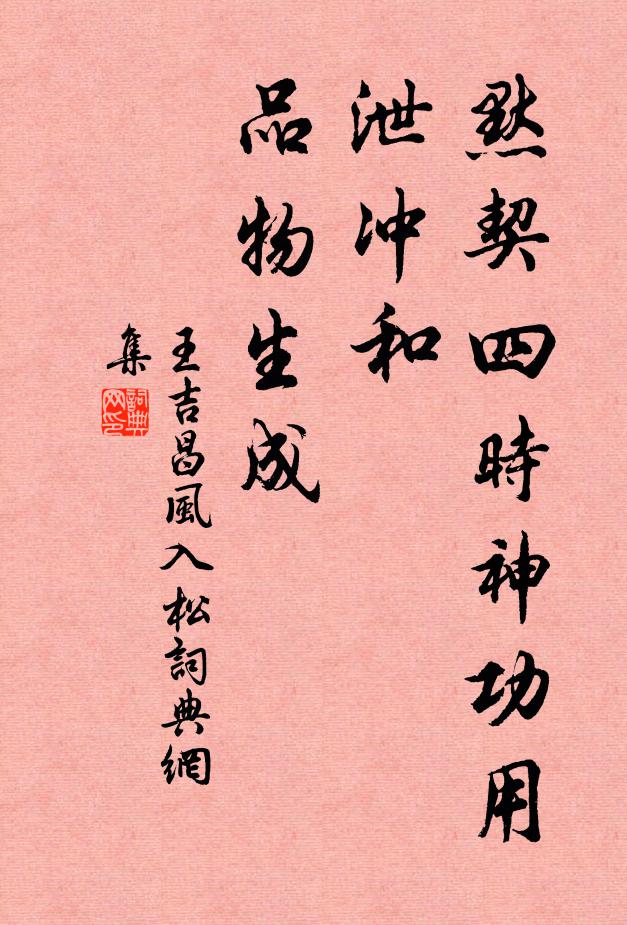 黙契四時神功用
泄冲和
品物生成
王吉昌風入松詞典網
集
詞典
网印